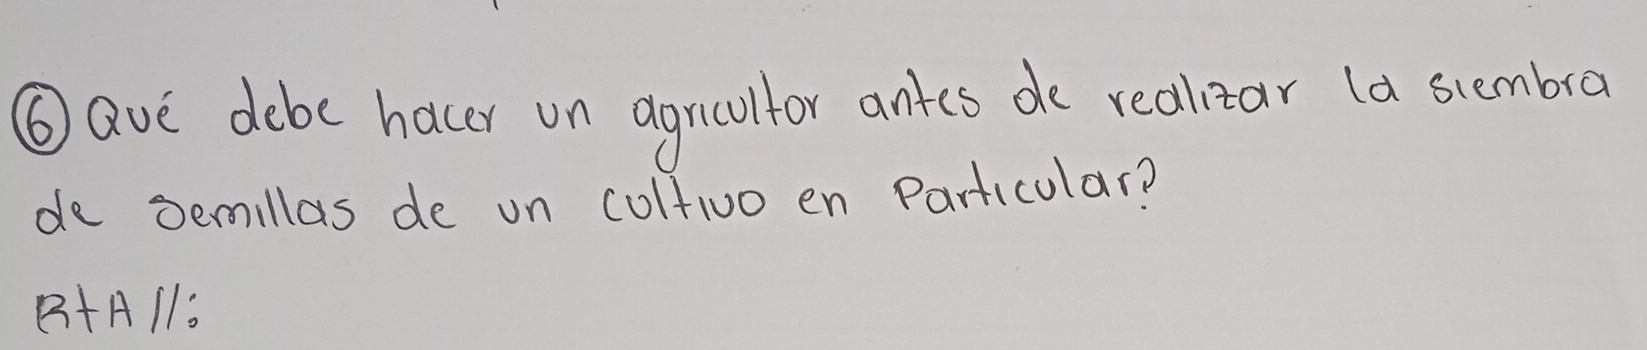 ⑥ Qué debe hacer un agricultor antes de realizar la siembra
de semillas de un cultivo en Particular?
RtA //: